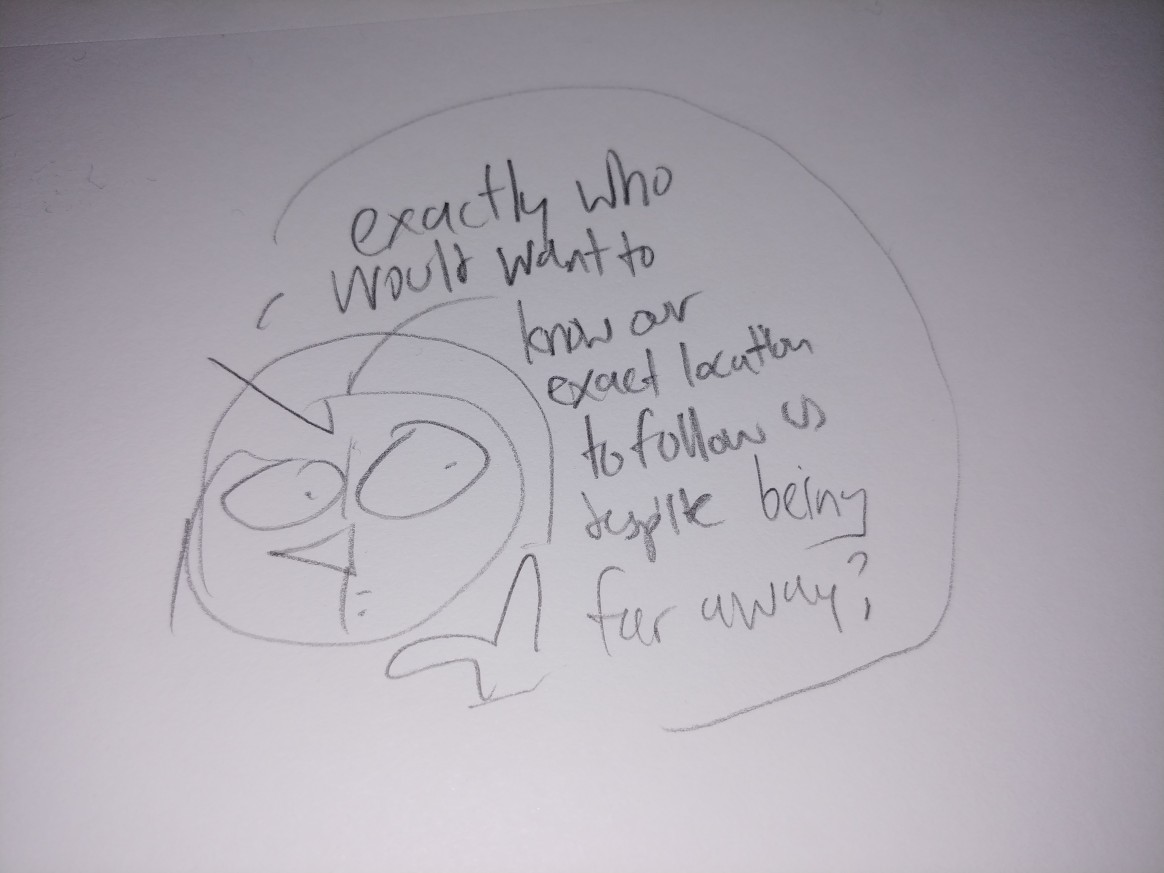 exactly who
would want to
know our
exact location
to follow us
despite being
far away?